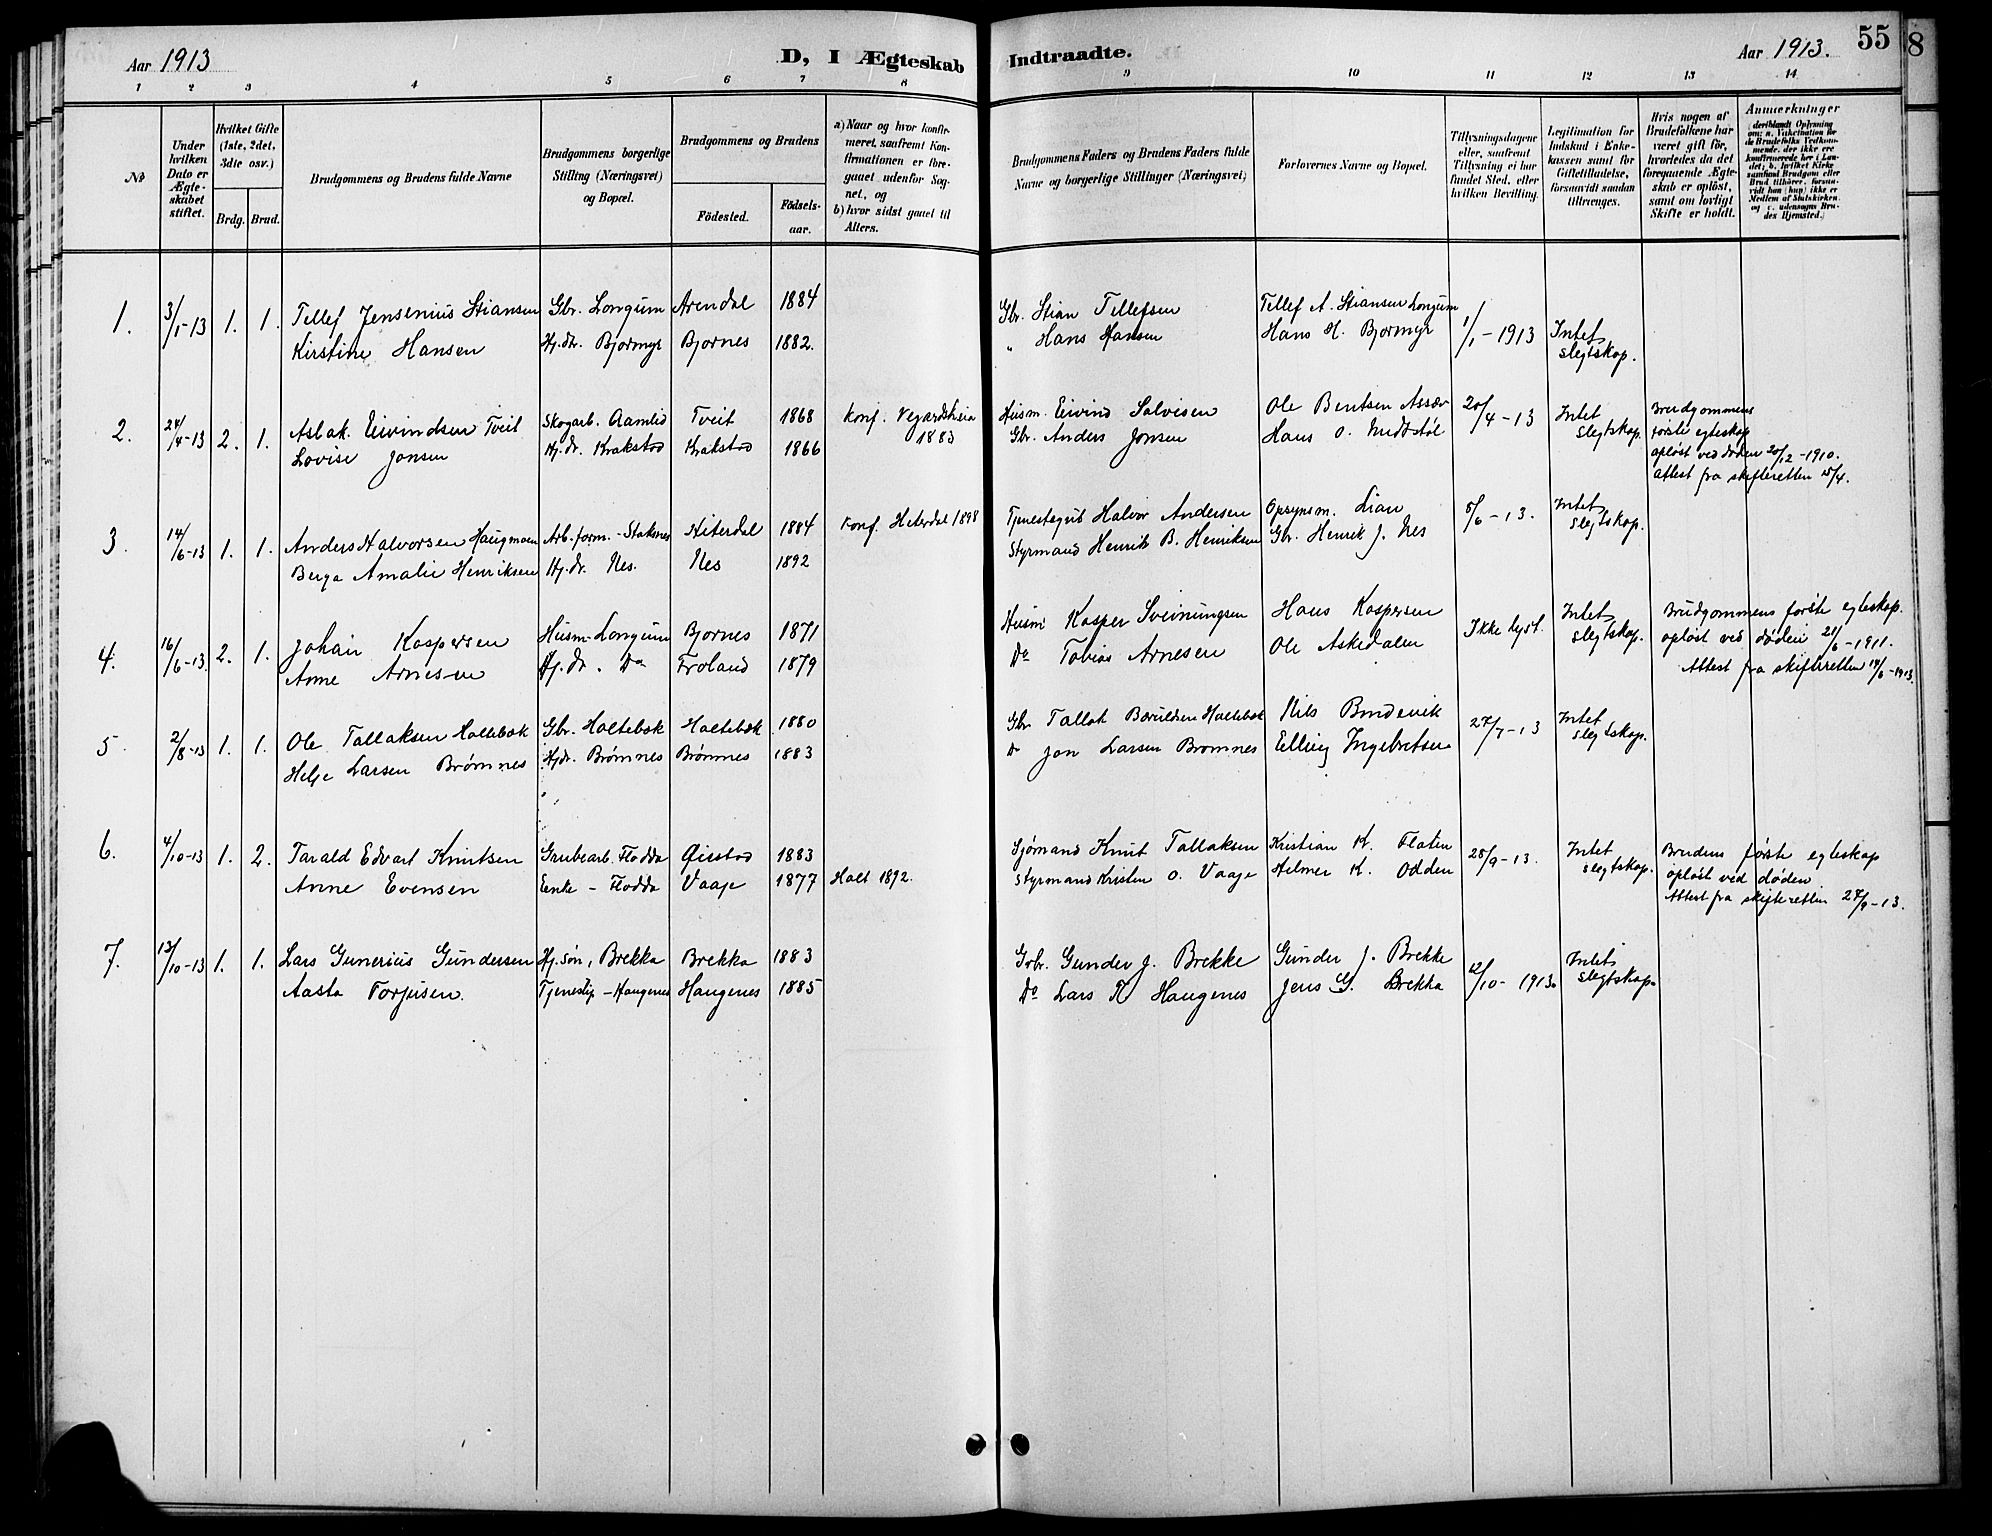 Aar 1913
D, I Ægteskab
Indtraadte.
Aar 1913.
55
8
1 2 3 4 5 6 7 8 9 10 11 12 13 14
No
Under hvilken Dato er Ægteskabet stiftet.
Hvilket Gifte (1ste, 2det, 3die osv.)
Brdg. Brud.
Brudgommens og Brudens fulde Navne
Brudgommens borgerlige Stilling (Næringsvei) og Bopæl.
Brudgommens og Brudens
Födested.
Födselsaar.
a) Naar og hvor konfirmeret, saafremt Konfirmationen er foregaaet udenfor Sognet, og
b) hvor sidst gaaet til Alters.
Brudgommens Faders og Brudens Faders fulde Navne og borgerlige Stillinger (Næringsvei)
Forlovernes Navne og Bopæl.
Tillysningsdagene eller, saafremt Tillysning ei har fundet Sted, efter hvilken Bevilling.
Legitimation for Indskud i Enkekassen samt for Giftetilladelse, forsaavidt saadan tiltrænges.
Hvis nogen af Brudefolkene har været gift för, hvorledes da det foregaaende Ægteskab er oplöst, samt om lovligt Skifte er holdt.
Anmerkninger
(deriblandt Oplysning om: a. Vakcination for de Brudefolks Vedkommende, der ikke ere konfirmerede her i Landet; b. hvilket Kirkesamfund Brudgom eller Brud tilhörer, forsaavidt han (hun) ikke er Medlem af Statskirken, og c. udensogns Brudes Hjemsted.)
1. 3/1-13 1. 1. Tellef Jensenius Stiansen Gbr. Longum Arendal 1884 Gbr. Stian Tellefsen Tellef A. Stiansen Longum 1/1-1913 Intet slegtskap.
Kirstine Hansen Hj.dr. Bjormyr Bjornes 1882. " Hans Hansen Hans H. Bjormyr
2. 24/4-13 2. 1. Aslak Eivindsen Tveit Skogarb. Aamlid Tveit 1868 Konf. Vegardsheia 1883 Husm. Eivind Salvesen Ole Bentsen 20/4-13 Intet slegtskap. Brudgommens förste egteskap opløst ved døden 20/12-1910. attest fra skifteretten 15/4.
Lovise Jonsen Hj.dr. Krakstad Krakstad 1866 Gbr. Anders Jonsen Hans O.
3. 14/6-13 1. 1. Anders Halvorsen Haugmoen Arb.form. - Staksnes Hiterdal 1884 Konf. Hiterdal 1898 Tjenestegut Halvor Andersen Opsynsm. Lian 8/6-13. Intet slegtskap.
Berga Amalie Henriksen Hj.dr. Nes. Nes 1892 Styrmand Henrik B. Henriksen Gbr. Henrik J. Nes
4. 16/6-13 2. 1. Johan Kaspersen Husm. Longum Bjornes 1871 Husm. Kasper Sveinungsen Hans Kaspersen Ikke lyst. Intet slegtskap. Brudgommens første egteskap. opløst ved døden 21/6-1911. Attest fra skifteretten 14/6-1913.
Anne Arnesen Hj.dr. Do Froland 1879 Do Tobias Arnesen Ole Askedalen
5 2/8-13 1. 1. Ole Tallaksen Holtebæk Gbr. Holtebæk Holtebæk 1880 Gbr Tallak Holtebæk Nils 27/7-13 Intet slegtskap.
Helje Larsen Brømnes Hjdr. Brømnes Brømnes 1883 Do Jon Larsen Bromnes Elling Ingebretsen
6. 4/10-13 1. 2. Tarald Edvart Knutsen Grubearb. Flodda Øiestad 1883 Sjømand Knut Tallaksen Kristian K. Flaten 28/9-13. Intet slegtskap. Brudens første egteskap opløst ved døden. Attest fra skifteretten 27/9-13.
Anne Evensen Enke - Flodda Vaage 1877 Holt 1892. Styrmand Kristen O. Vaage Helmer K. Odden
7. 13/10-13 1. 1. Lars Gunerius Gundersen Hj.søn, Brekka Brekka 1883 Grbr. Gunder J. Brekke Gunder J. Brekke 12/10-1913. Intet slegtskap.
Aasta Torjusen. Tjenestep - Haugenes Haugenes 1885 Do Lars K Haugenes Jens G. Brekka